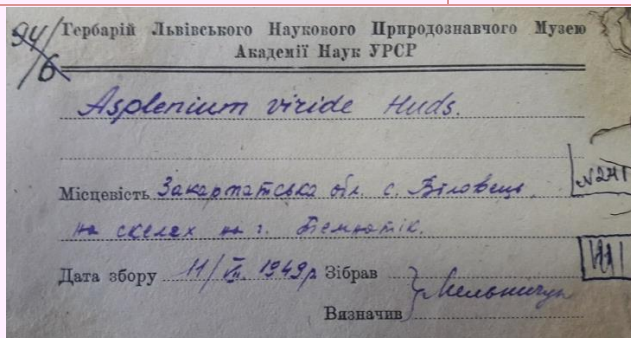 94/6
Гербарій Львівського Наукового Природознавчого Музею
Академії Наук УРСР
Asplenium viride Huds.
№241
Місцевість Закарпатська обл. с. Біловець,
на скелях на г. Темнатік.
Дата збору 11/VII. 1949р Зібрав
Вязначив Мельничук